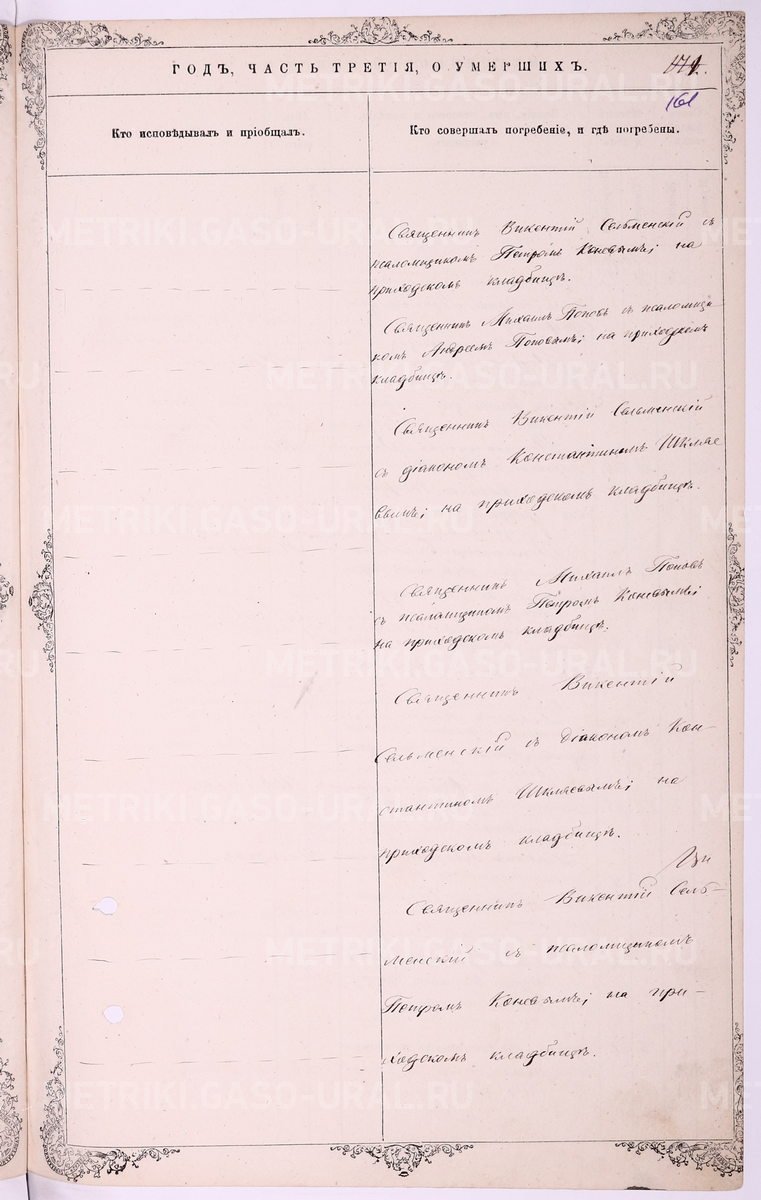 ГОДЪ, ЧАСТЬ ТРЕТІЯ, О УМЕРШИХЪ.
161
Кто исповѣдывалъ и пріобщалъ.
Кто совершалъ погребеніе, и гдѣ погребены.
Священникъ Викентій Сельменскій съ
псаломщикомъ Петромъ Коневымъ; на
приходскомъ кладбищѣ.
Священникъ Михаилъ Поповъ съ псаломщи
комъ Андреемъ Поповымъ; на приходскомъ
кладбищѣ.
Священникъ Викентій Сельменскій
съ діакономъ Константиномъ Шкляе
вымъ; на приходскомъ кладбищѣ.
Священникъ Михаилъ Поповъ
съ псаломщикомъ Петромъ Коневымъ;
на приходскомъ кладбищѣ.
Священникъ Викентій
Сельменскій съ діакономъ Кон-
стантиномъ Шкляевымъ; на
приходскомъ кладбищѣ.
Священникъ Викентій Сель-
менскій съ псаломщикомъ
Петромъ Коневымъ; на при-
ходскомъ кладбищѣ.
METRIKI.GASO-URAL.RU